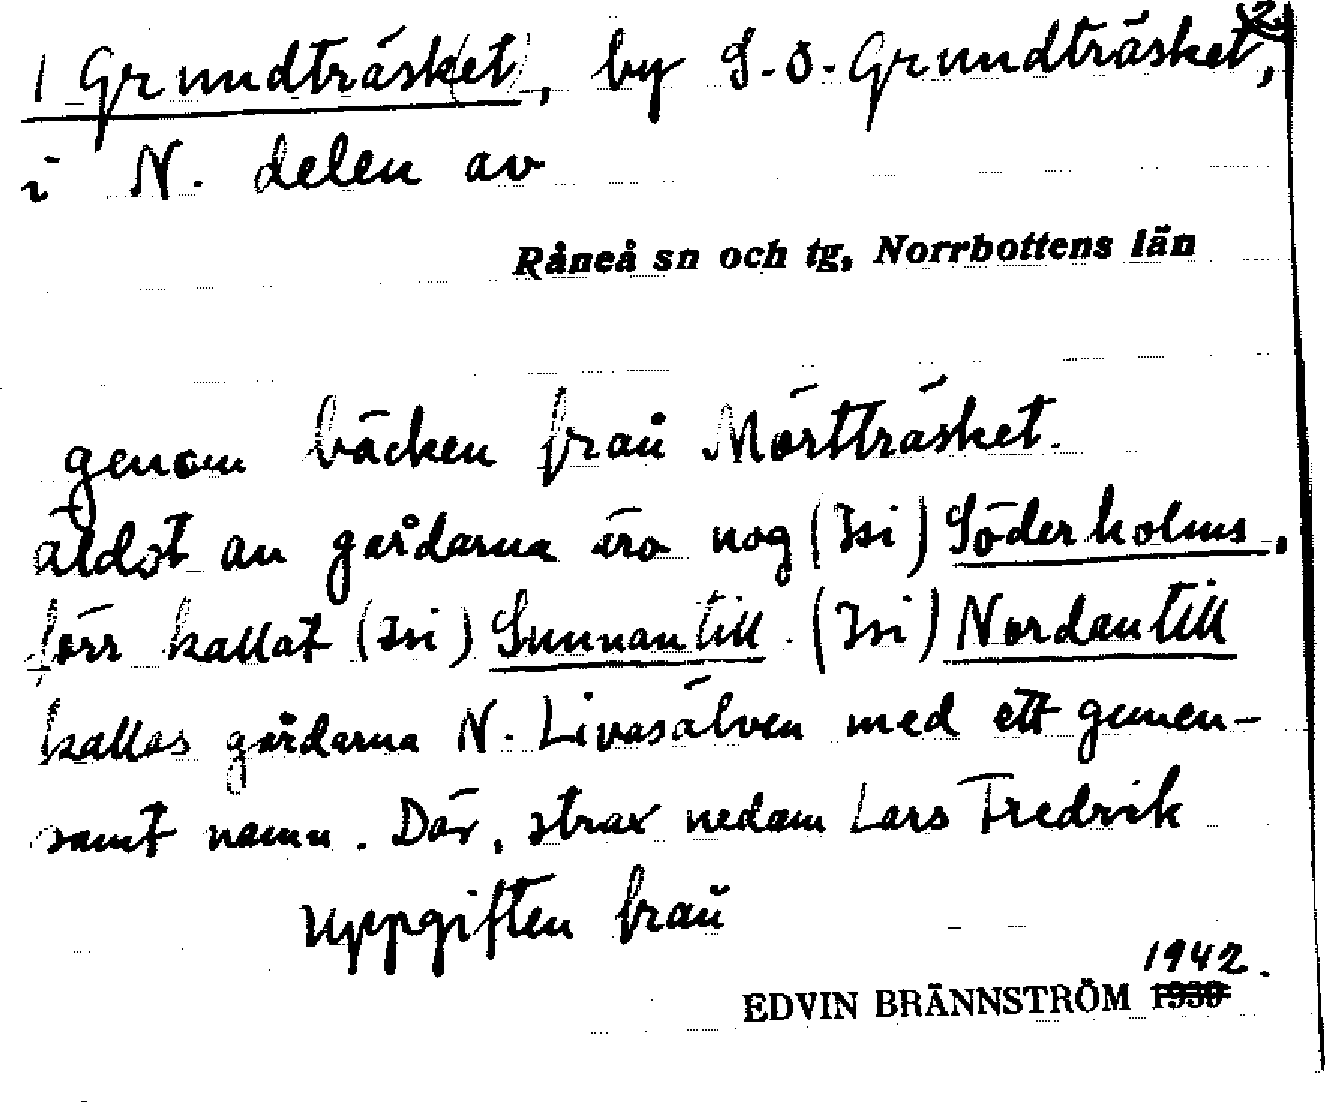 2.
1 Grundträsk(et), by S.O. Grundträsket,
i N. delen av
Råneå sn och tg, Norrbottens län
genom bäcken från Mörtträsket.
äldst av gårdarna äro nog (Isi) Söderholms,
förr kallat (Isi) Sunnantill. (Isi) Nordantill
kallas gårdarna N. Livasälven med ett gemen-
samt namn. Där, strax nedam Lars Fredrik
uppgiften från
1942.
EDVIN BRÄNNSTRÖM 1930